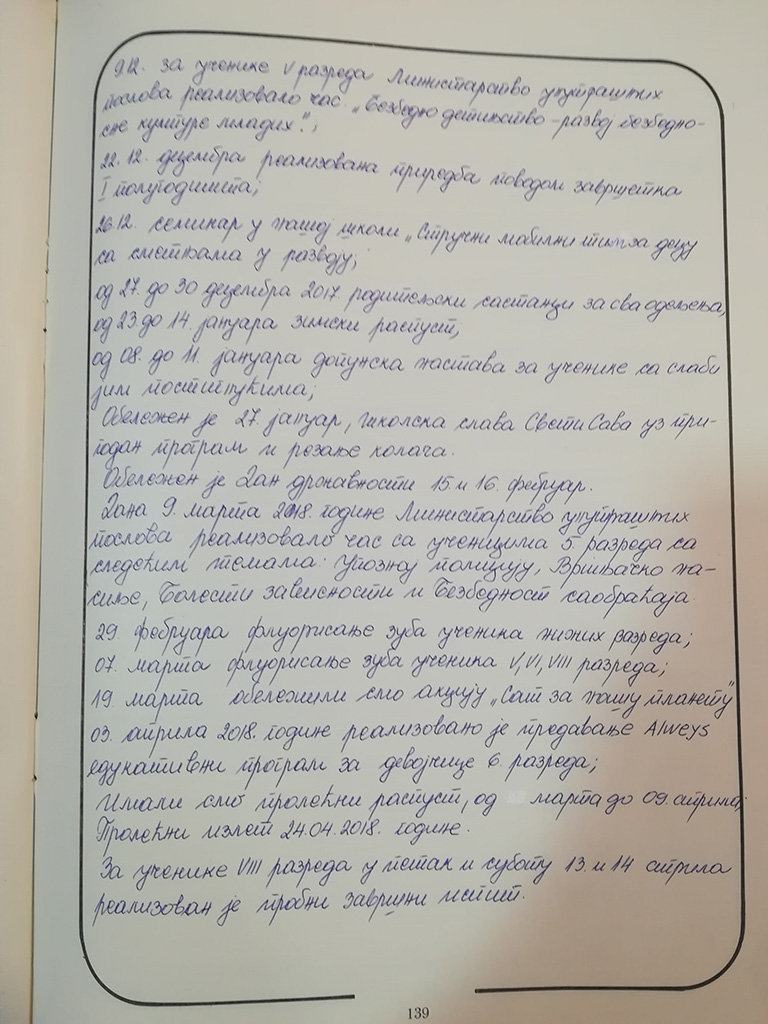 9.12. за ученике V разреда Министарство унутрашњих
послова реализовало час „Безбедно детињство - развој безбедно-
сне културе младих“;
22.12. децембра реализована приредба поводом завршетка
I полугодишта;
26.12. семинар у нашој школи „Стручни мобилни тим за децу
са сметњама у развоју;
од 27. до 30 децембра 2017. родитељски састанци за сва одељења,
од 23. до 14. јануара зимски распуст;
од 08. до 11. јануара допунска настава за ученике са слаби
јим постигнућима;
Обележен је 27. јануар, школска слава Свети Сава уз при-
годан програм и резање колача.
Обележен је Дан државности 15. и 16. фебруар.
Дана 9. марта 2018. године Министарство унутрашњих
послова реализовало час са ученицима 5. разреда са
следећим темама: Упознај полицију, Вршњачко на-
сиље, Болести зависности и Безбедност саобраћаја.
29. фебруара флуорисање зуба ученика нижих разреда;
07. марта флуорисање зуба ученика V, VI, VIII разреда;
19. марта обележили смо акцију „Сат за нашу планету“
03. априла 2018. године реализовано је предавање Alweys
едукативни програм за девојчице 6. разреда;
Имали смо пролећни распуст, од марта до 09. априла;
Пролећни излет 24.04.2018. године.
За ученике VIII разреда у петак и суботу 13. и 14 априла
реализован је пробни завршни испит.
139